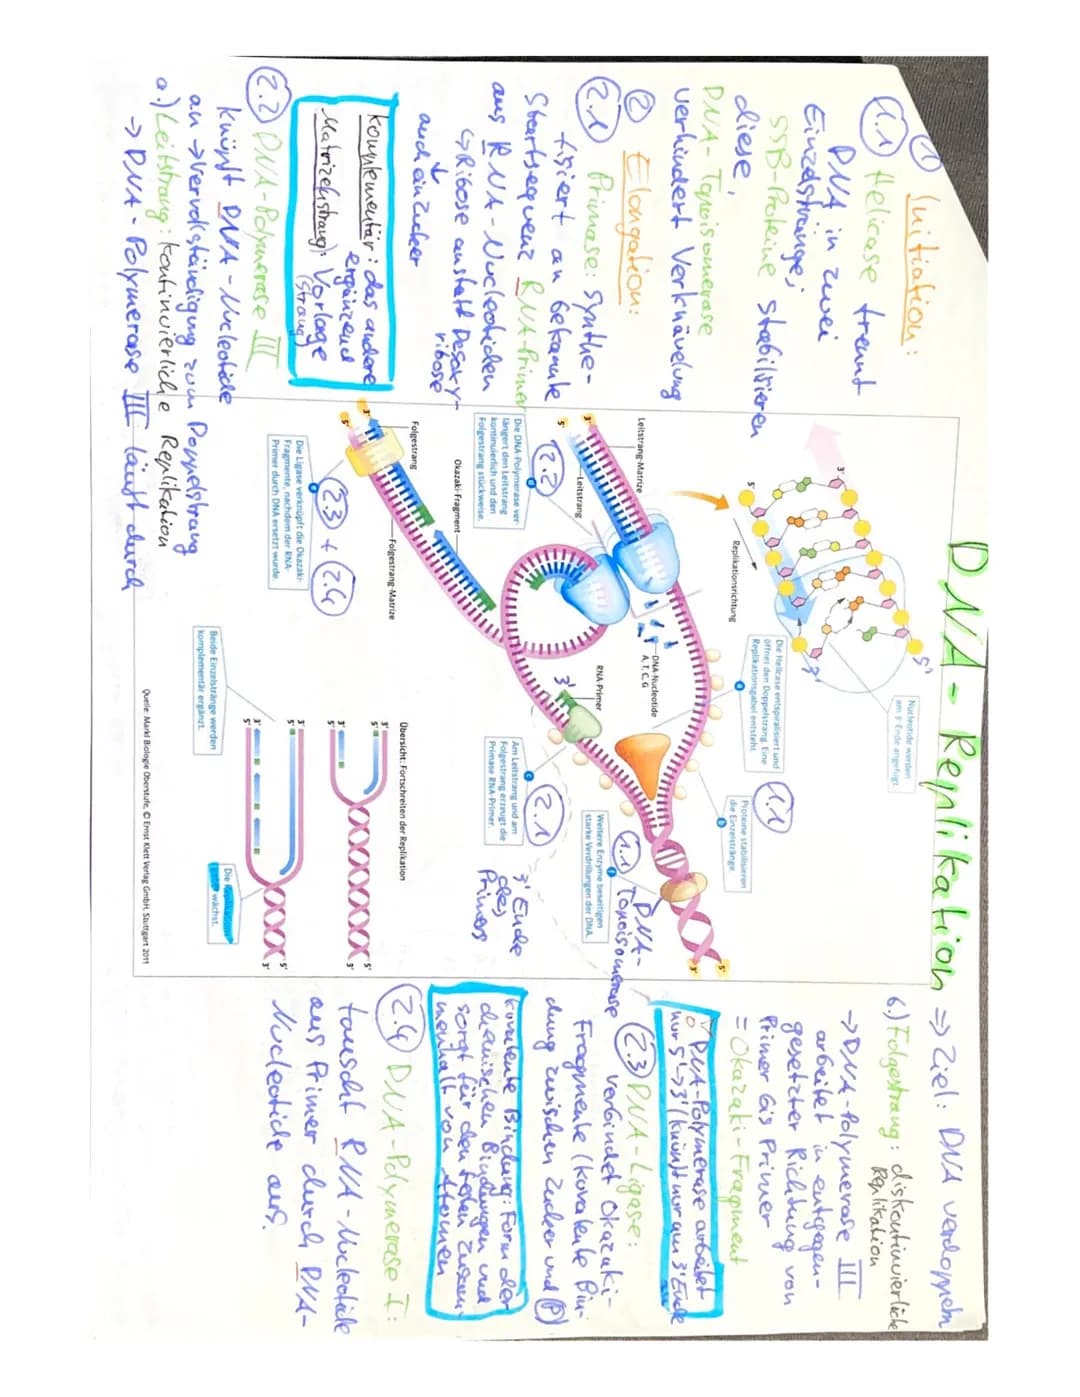 DNA-Replikation => Ziel: DNA verdoppeln
① Initiation:
1.1 Helicase trennt
DNA in zwei
Einzelstränge;
SSB-Proteine stabilisieren
diese,
DNA-Topoisomerase
verhindert Verknäuelung
② Elongation:
2.1 Primase: synthe-
tisiert an bekannte
Startsequenz RNA-Primer
aus RNA-Nucleotiden
↳ Ribose anstatt Desoxy-
ribose
↓
auch ein Zucker
komplementär: das andere
ergänzend
Matrize(nstrang): Vorlage
(Strang)
2.2 DNA-Polymerase III
knüpft DNA-Nucleotide
an → Vervollständigung zum Doppelstrang
a.) Leitstrang: kontinuierliche Replikation
→ DNA-Polymerase III läuft durch
3'
5'
5'
3'
Replikationsrichtung
Nucleotide werden
am 3'-Ende angefügt.
Die Helicase entspiralisiert und
öffnet den Doppelstrang. Eine
Replikationsgabel entsteht.
a
1.1
Proteine stabilisieren
die Einzelstränge.
b
Leitstrang-Matrize
3'
5'
Leitstrang
2.2
d
Die DNA-Polymerase ver-
längert den Leitstrang
kontinuierlich und den
Folgestrang stückweise.
DNA-Nucleotide
A, T, C, G
RNA-Primer
3'
1.1 DNA-
Topoisomerase
f
Weitere Enzyme beseitigen
starke Verdrillungen der DNA.
5'
3'
Okazaki-Fragment
2.1
c
Am Leitstrang und am
Folgestrang erzeugt die
Primase RNA-Primer.
3' Ende
des
Primers
Folgestrang
3'
5'
Folgestrang-Matrize
2.3 + 2.4
e
Die Ligase verknüpft die Okazaki-
Fragmente, nachdem der RNA-
Primer durch DNA ersetzt wurde.
Übersicht: Fortschreiten der Replikation
3'
5'
3'
5'
5'
3'
3'
5'
3'
5'
5'
3'
Beide Einzelstränge werden
komplementär ergänzt.
Die
wächst.
Quelle: Markl Biologie Oberstufe, © Ernst Klett Verlag GmbH, Stuttgart 2011
b.) Folgestrang: diskontinuierliche
Replikation
→ DNA-Polymerase III
arbeitet in entgegen-
gesetzter Richtung von
Primer bis Primer
= Okazaki-Fragment
DNA-Polymerase arbeitet
nur 5'→3' (knüpft nur am 3' Ende
an)
2.3 DNA-Ligase:
verbindet Okazaki-
Fragmente (kovalente Bin-
dung zwischen Zucker und P)
kovalente Bindung: Form der
chemischen Bindungen und
sorgt für den festen Zusam-
menhalt von Atomen
2.4 DNA-Polymerase I:
tauscht RNA-Nucleotide
aus Primer durch DNA-
Nucleotide aus.